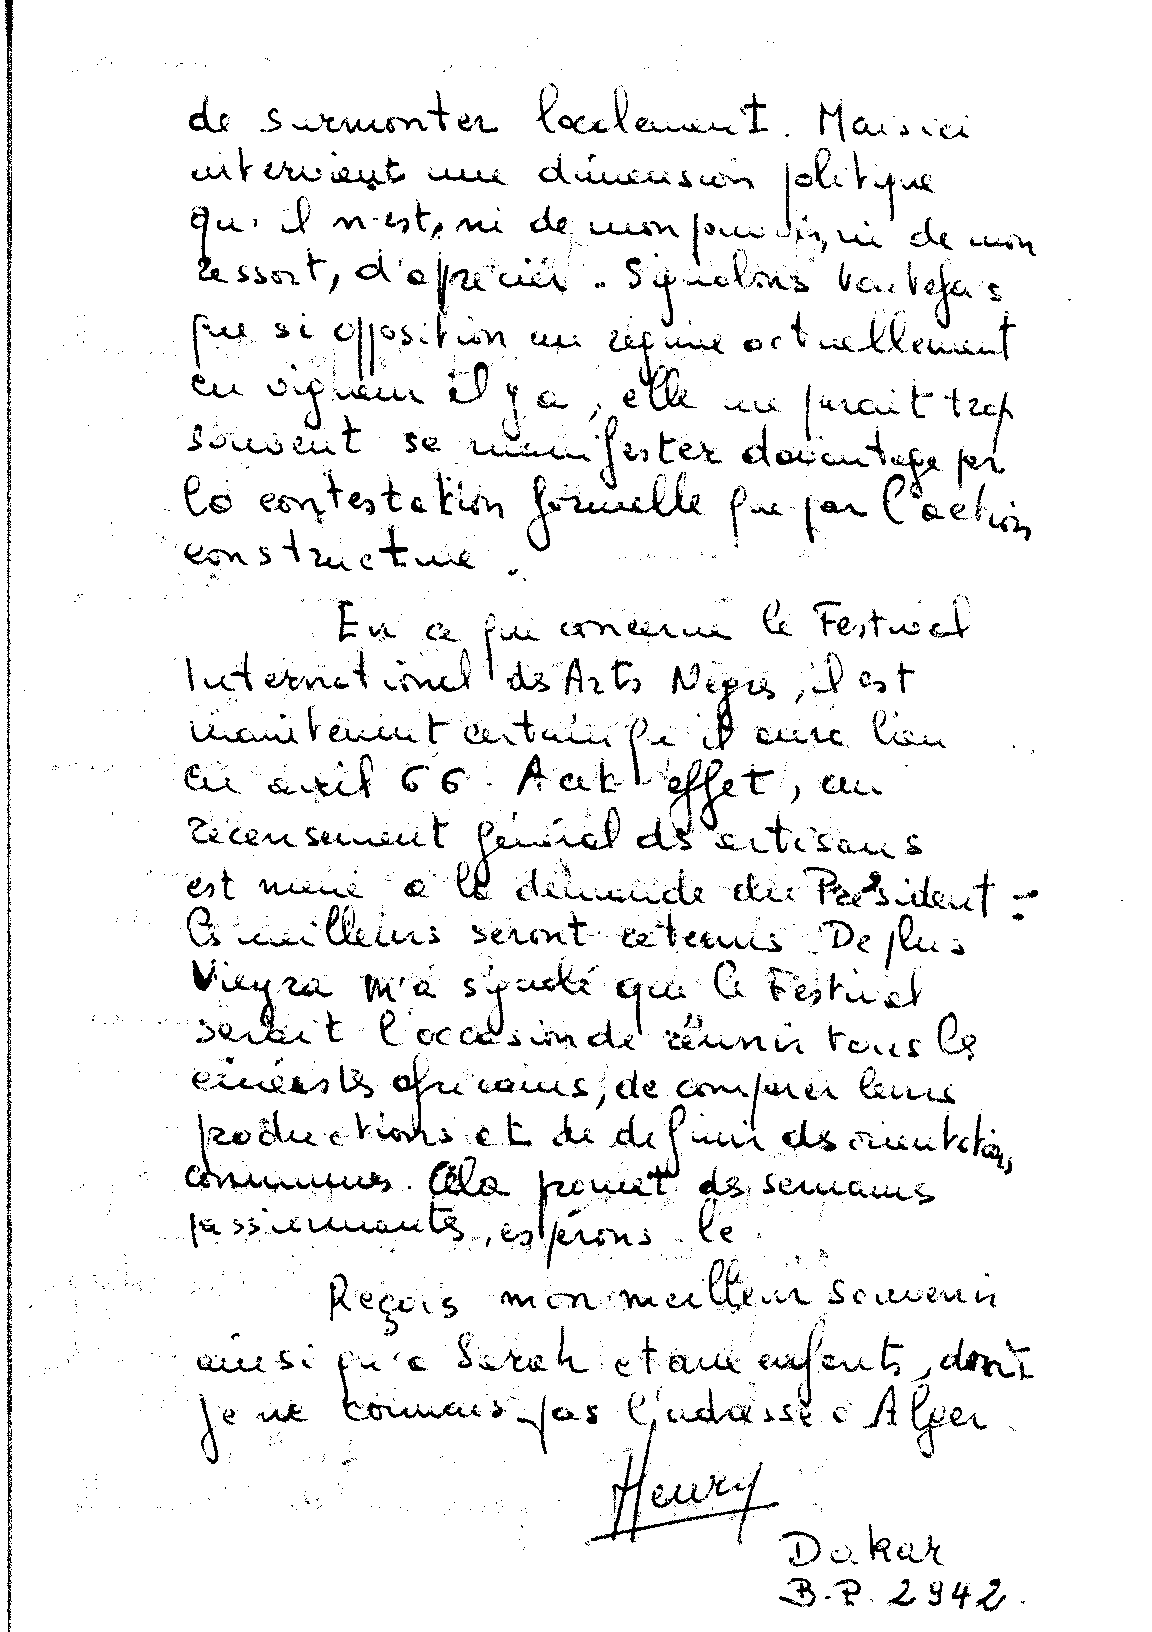 de surmonter localement. Mais ici
intervient une dimension politique
qu'il n'est, ni de mon pouvoir, ni de mon
ressort, d'apprécier. Signalons toutefois
que si opposition au régime actuellement
en vigueur il y a, elle me paraît trop
souvent se manifester davantage par
la contestation formelle que par l'action
constructive.
En ce qui concerne le Festival
International des Arts Nègres, il est
maintenant certain qu'il aura lieu
en avril 66. A cet effet, un
recensement général des artisans
est mené à la demande du Président :
les meilleurs seront retenus. De plus
Vieyra m'a signalé que le Festival
serait l'occasion de réunir tous les
cinéastes africains, de comparer leurs
productions et de définir des orientations
communes. Cela promet des semaines
passionnantes, espérons-le.
Reçois mon meilleur souvenir
ainsi qu'à Sarah et aux enfants, dont
je ne connais pas l'adresse à Alger.
Henry
Dakar
B.P. 2942.